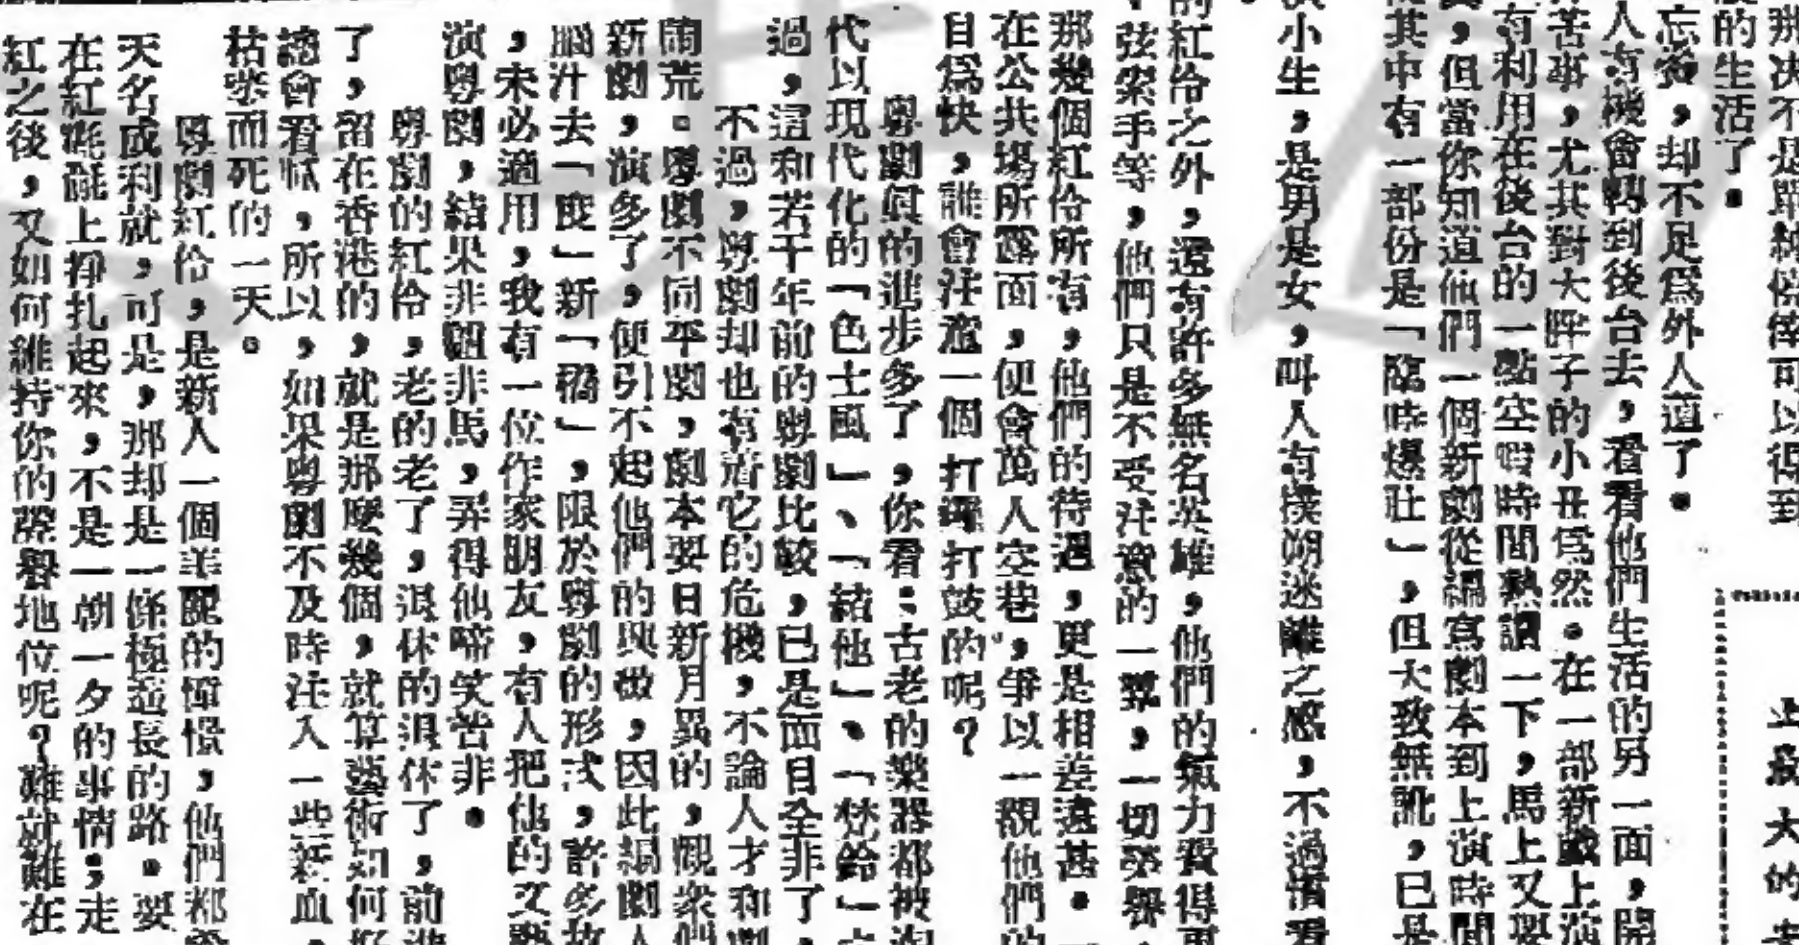 那决不是單純
的生活了。
忘資，却不足爲外人道了。
人有機會轉到後台去，看看他們生活的另一面，開
苦事，尤其對大牌子的小丑爲然。在一部新戲上演
有利用在後台的一點空暇時間熟讀一下，馬上又要
，但當你知道他們一個新劇從編寫劇本到上演時間
其中有一部份是「臨時爆肚」，但大致無訛，已是
小生，是男是女，叫人有撲朔迷離之感，不過慣看
的紅伶之外，還有許多無名英雄，他們的氣力費得更
、弦索手等，他們只是不受注意的一羣，一切榮譽，
那幾個紅伶所有，他們的待遇，更是相差遠甚。
在公共場所露面，便會萬人空巷，爭以一覩他們的
目爲快，誰會注意一個打鑼打鼓的呢？
粵劇眞的進步多了，你看：古老的樂器都被淘
代以現代化的「色士風」、「結他」、「梵鈴」
過，這和若干年前的粵劇比較，已是面目全非了，
不過，粵劇却也有着它的危機，不論人才和劇
鬧荒。粵劇不同平劇，劇本要日新月異的，觀衆們
新劇，演多了，便引不起他們的興緻，因此編劇人
腦汁去「度」新「橋」，限於粵劇的形式，許多故
，未必適用，我有一位作家朋友，有人把他的文藝
演粵劇，結果非驢非馬，弄得他啼笑苦非。
粵劇的紅伶，老的老了，退休的退休了，前
了，留在香港的，就是那麼幾個，就算藝術如何好
總會看膩，所以，如果粵劇不及時注入一些新血，
枯槳而死的一天。
粵劇紅伶，是新人一個美麗的憧憬，他們都
天名成利就，可是，那却是一條極遙長的路。要
在紅氍毹上掙扎起來，不是一朝一夕的事情；走
紅之後，又如何維持你的聲譽地位呢？難就難在
大的